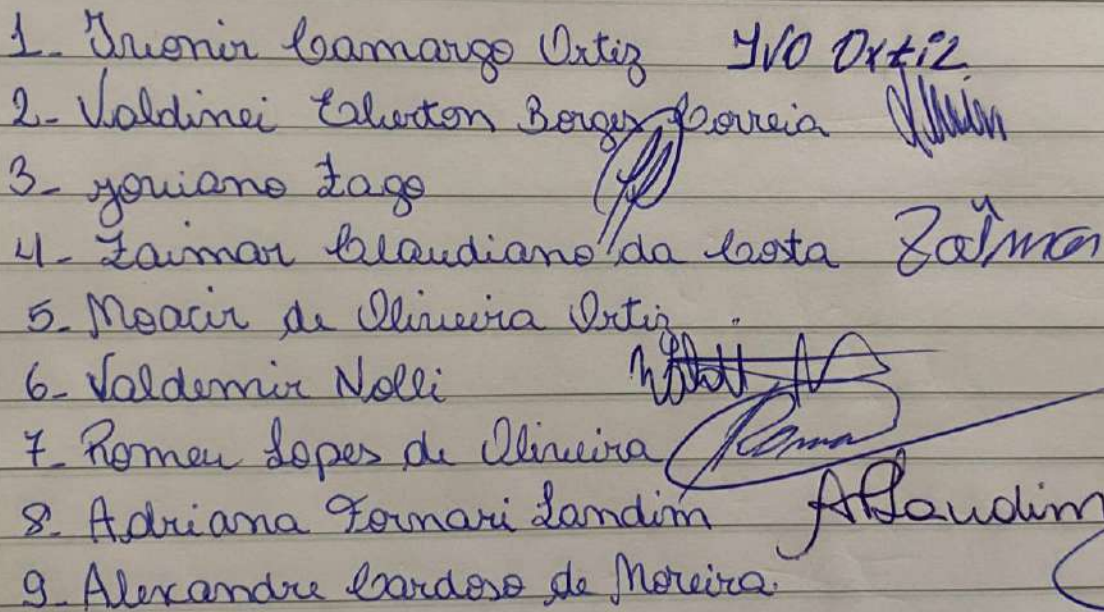 1- Irionir Camargo Ortiz Ivo Ortiz
2- Valdinei Elverton Borges Correia
3- Joviano Zago
4- Zaimar Claudiano da Costa Zaimar
5- Moacir de Oliveira Ortiz.
6- Valdemir Nolli
7- Romeu Lopes de Oliveira
8- Adriana Fornari Landim AFLandim
9- Alexandre Cardoso de Moreira.